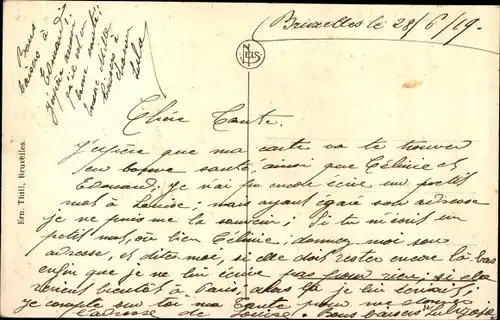 Bruxelles le 28/6/19.
NELS
Bons
baisers à
Edouard
Ern. Thill, Bruxelles.
Chère Tante.
J'espère que ma carte va te trouver
en bonne santé, ainsi que Célinie et
Edouard. Je n'ai pu encore écrire un petit
mot à Louise; mais ayant égaré son adresse
je ne puis me la souvenir; Si tu m'écris un
petit mot, ou bien Célinie; donnez moi son
adresse, et dites-moi, si elle doit rester encore là-bas
enfin que je ne lui écrive pas pour rien; si elle
revient bientôt à Paris, alors là je lui écrirai;
je compte sur toi ma Tante pour me donner
l'adresse de Louise. Bons baisers